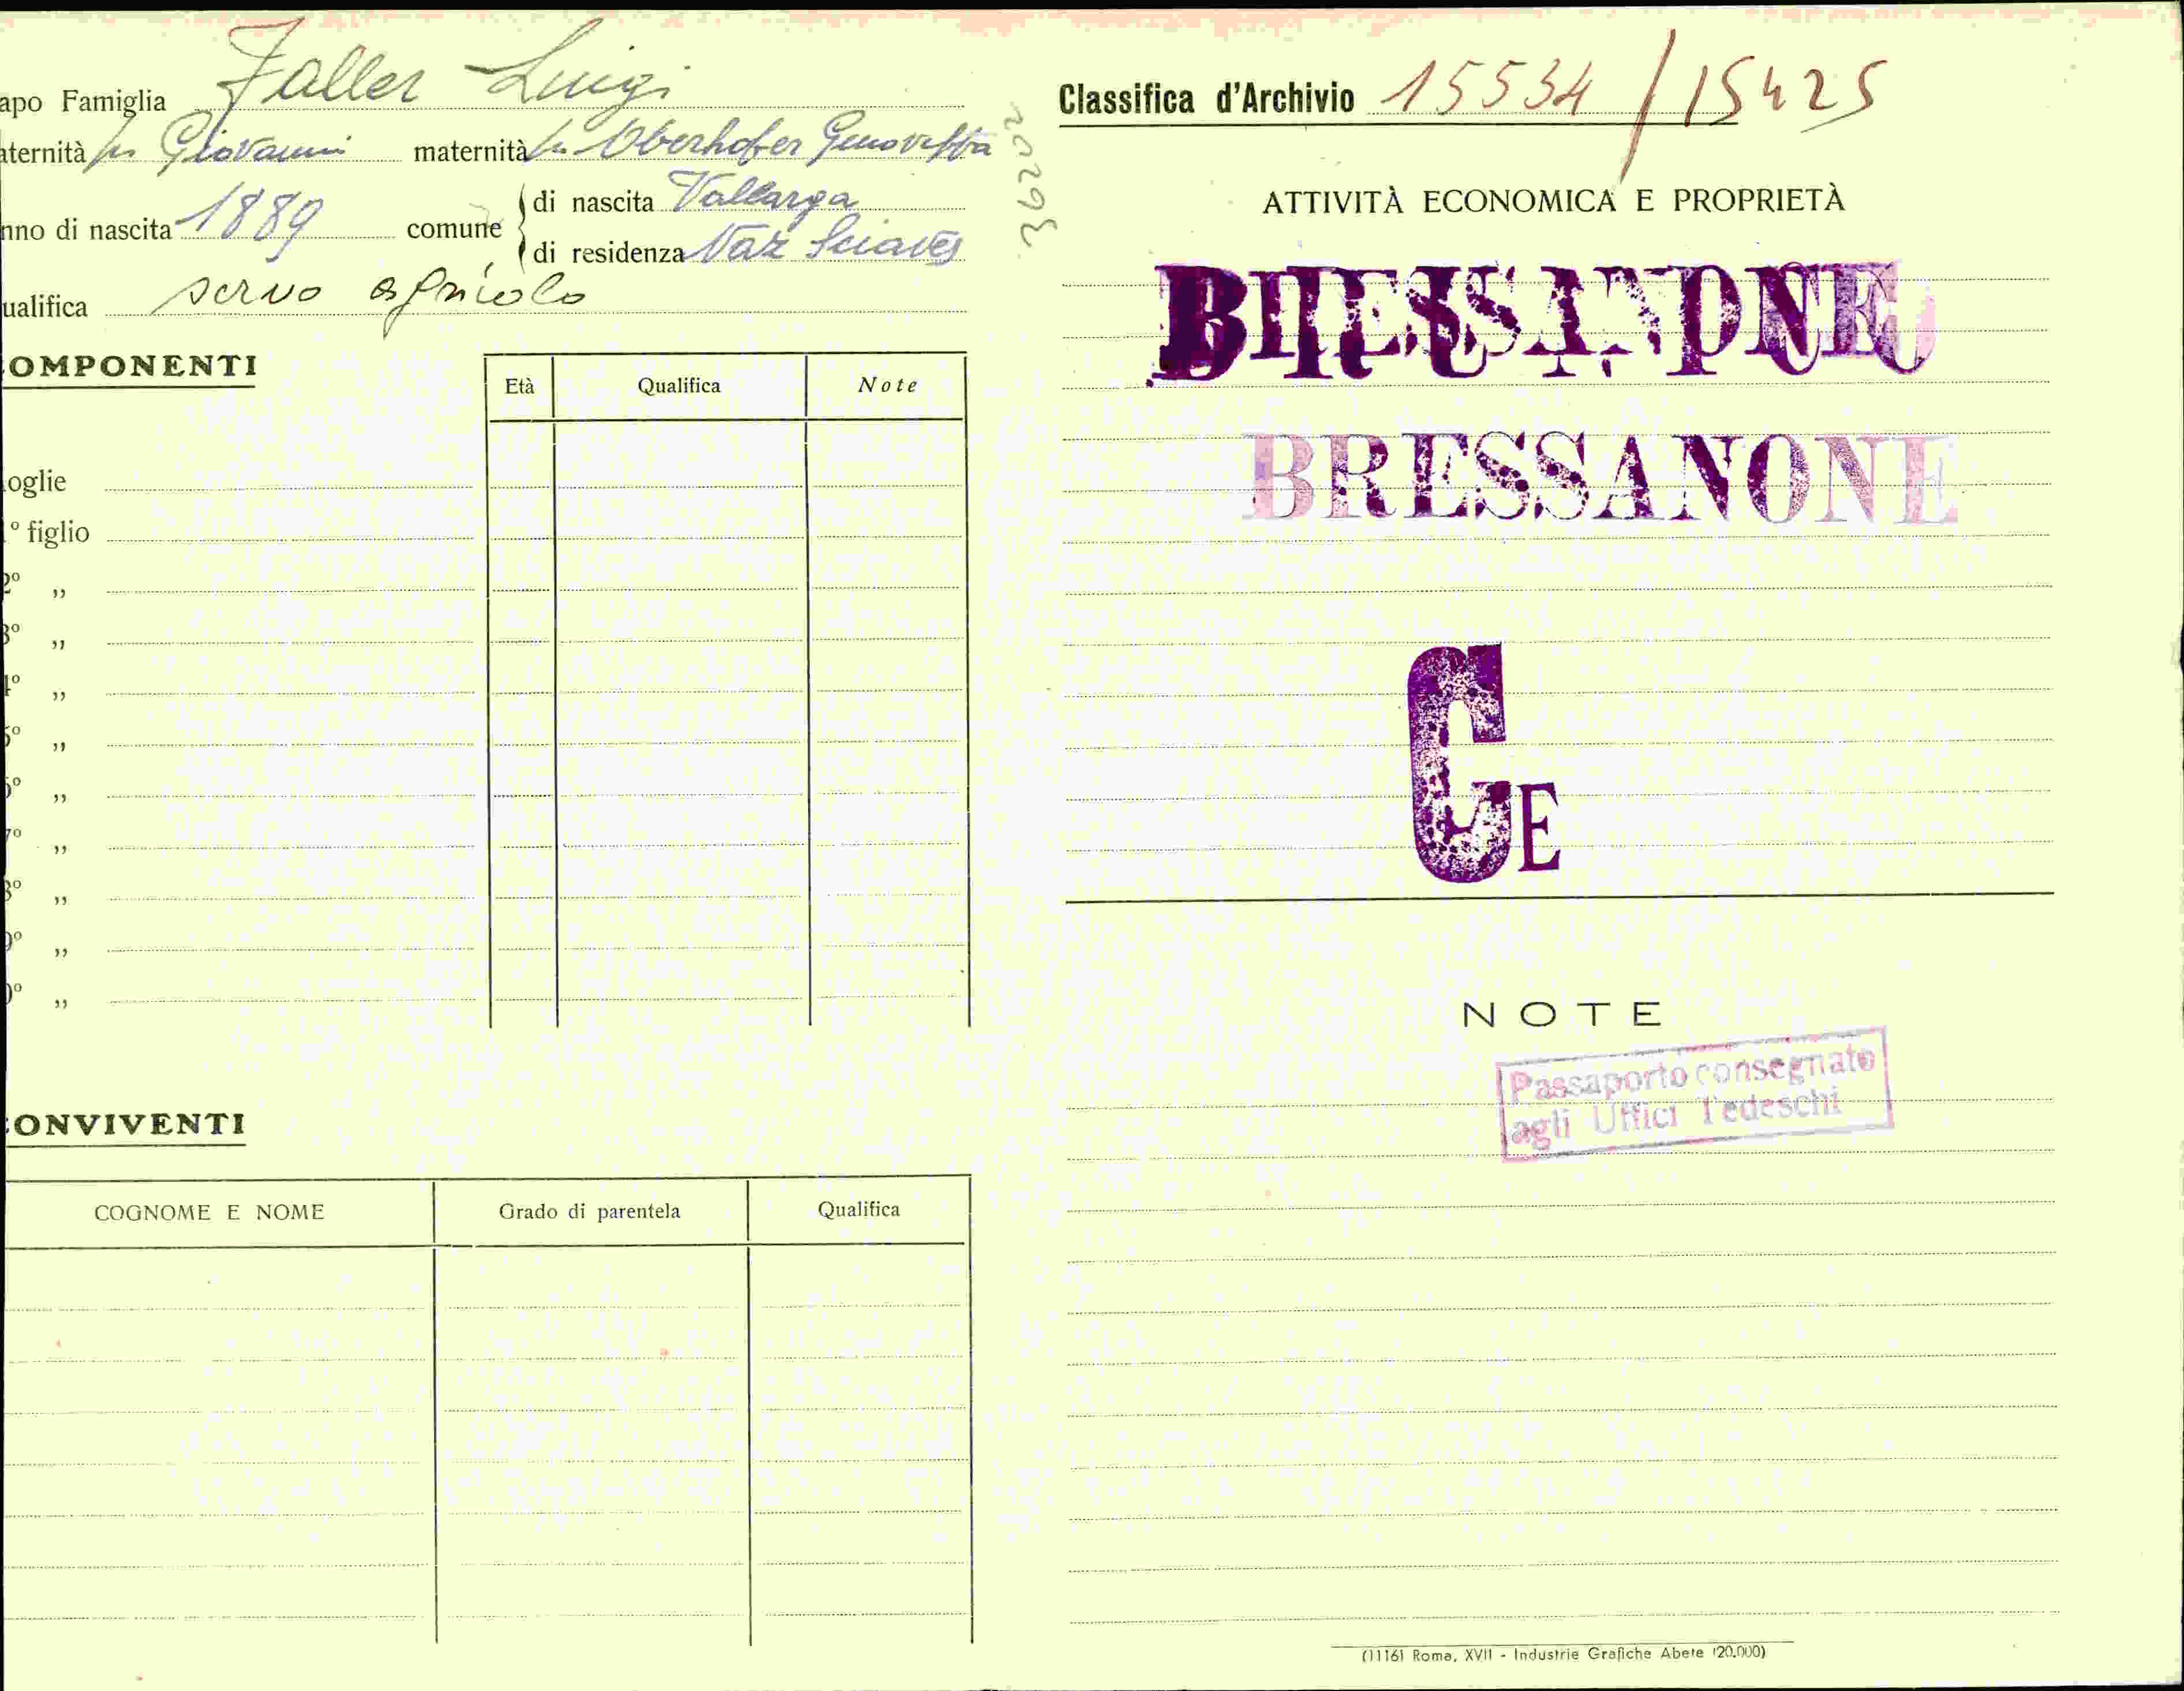 apo Famiglia Faller Luigi
aternità fu Giovanni maternità fu Oberhofer Genoveffa
nno di nascita 1889 comune di nascita Vallarga
di residenza Naz Sciaves
ualifica servo agricolo
OMPONENTI
Età Qualifica Note
oglie
1º figlio
2º „
3º „
4º „
5º „
6º „
7º „
8º „
9º „
0º „
CONVIVENTI
COGNOME E NOME Grado di parentela Qualifica
20292
Classifica d'Archivio 15534 / 15425
ATTIVITÀ ECONOMICA E PROPRIETÀ
BRESSANONE
G E
NOTE
Passaporto consegnato
agli Uffici Tedeschi
(1116) Roma, XVII - Industrie Grafiche Abete (20.000)